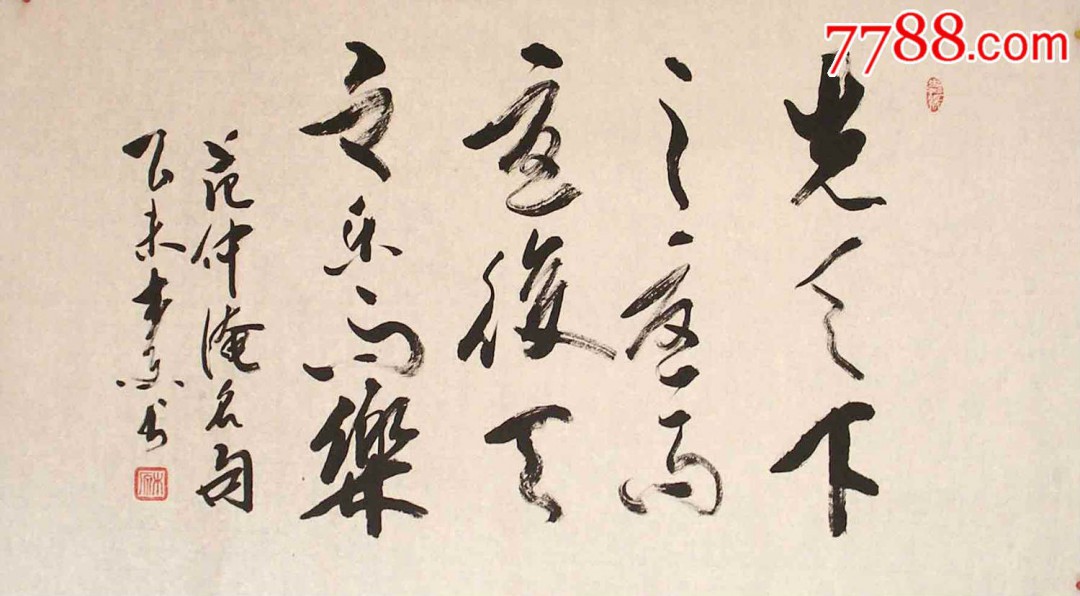 7788.com
先天下
之憂而
憂後天
下之乐而樂
范仲淹名句
乙未木原书